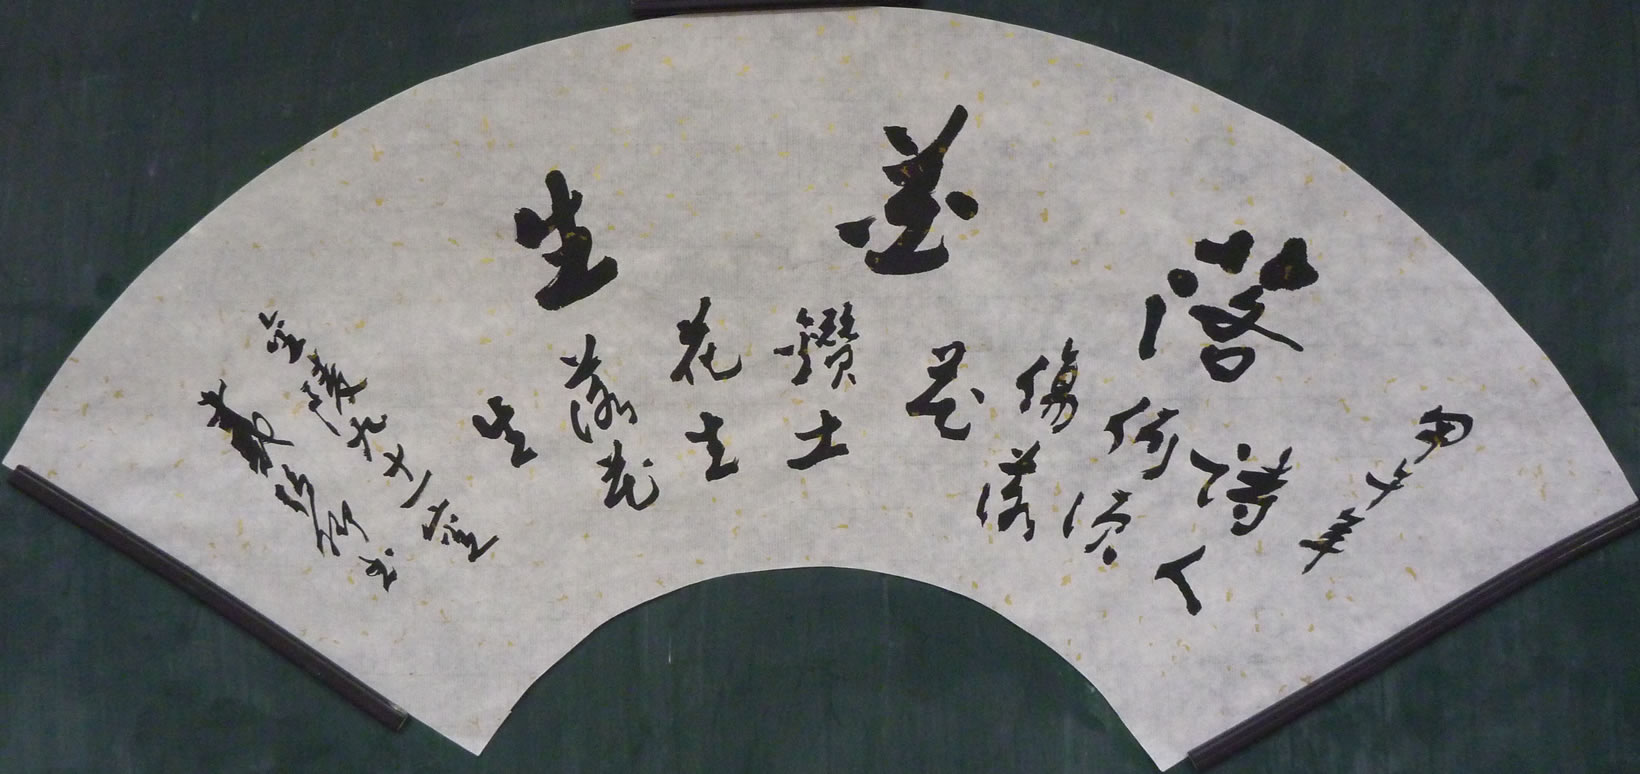 甲午年
落花生
詩人
何須
傷落
花
鑽土
花生
落花
生
金陵
書